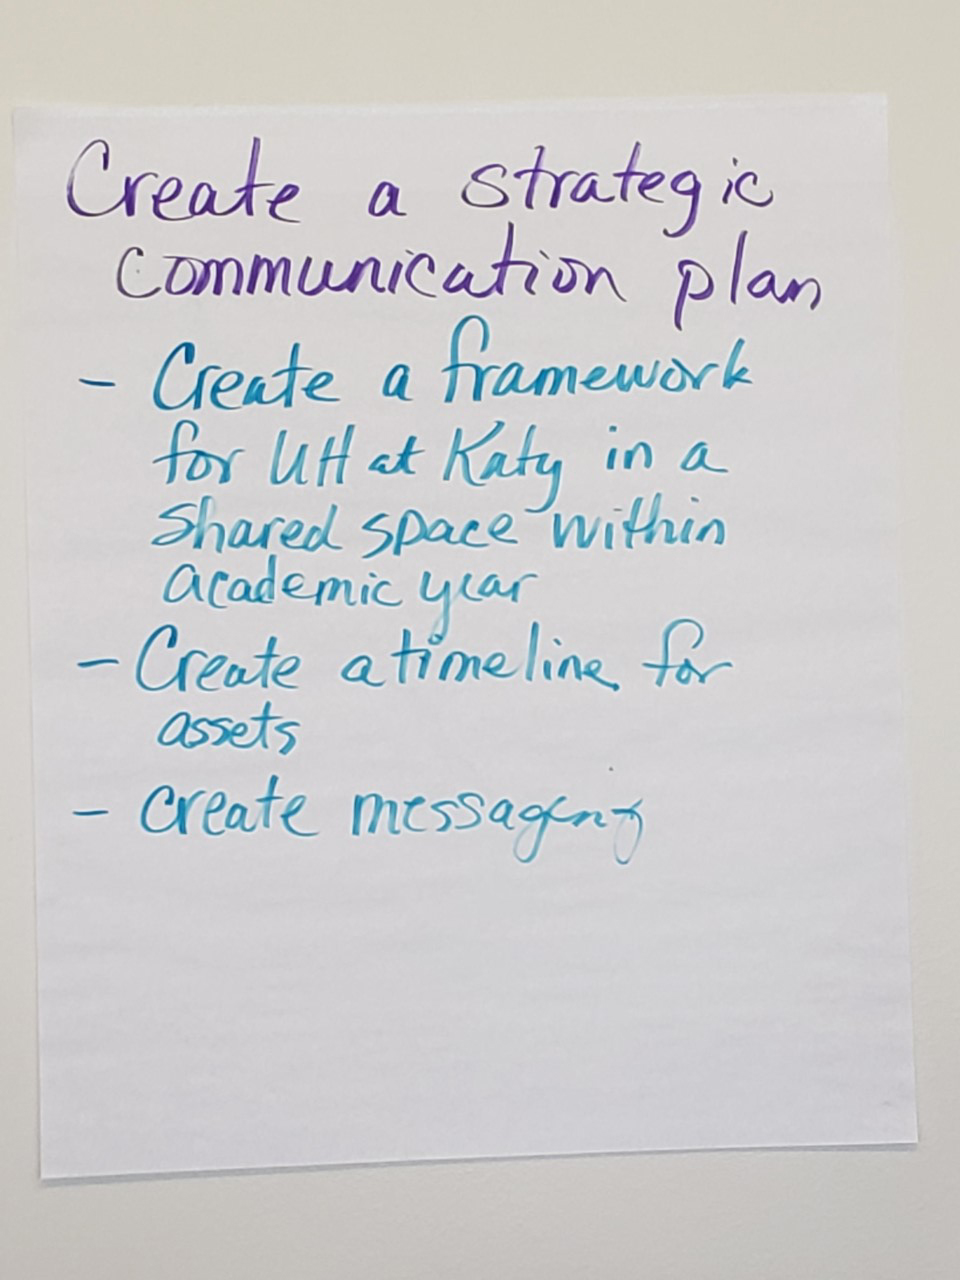 Create a strategic
communication plan
- Create a framework
for UH at Katy in a
shared space within
academic year
- Create a timeline for
assets
- Create messaging